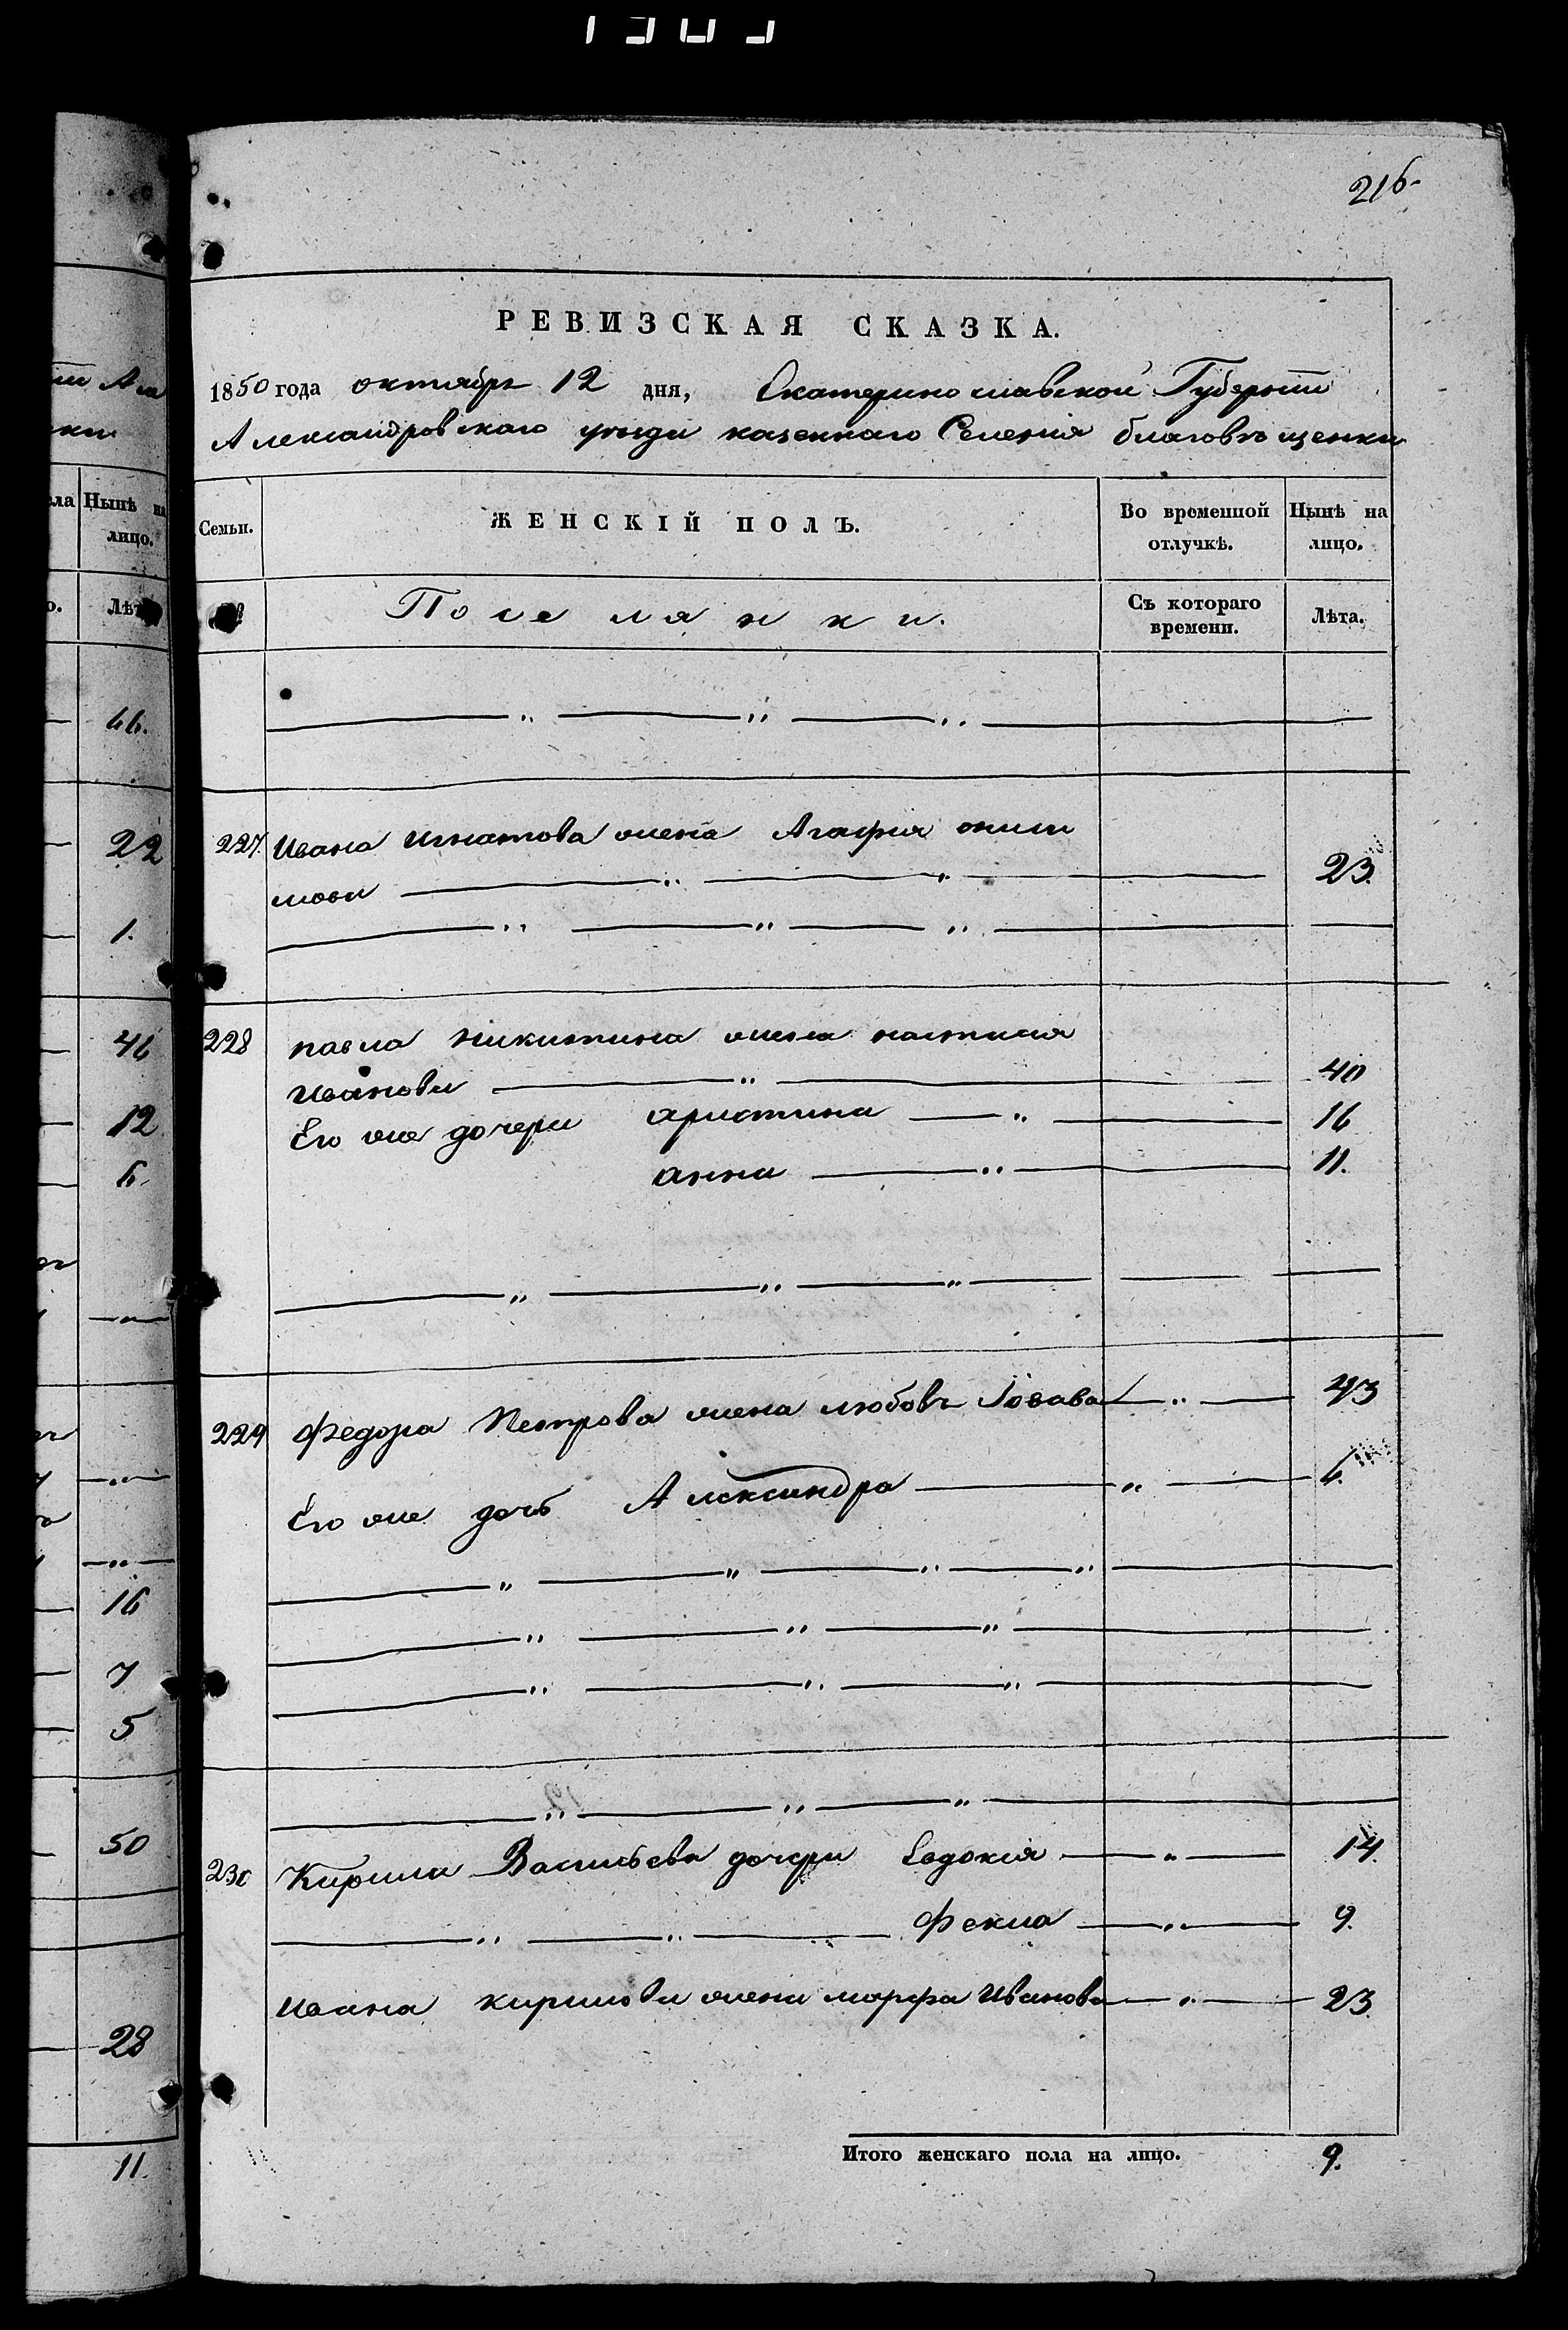 216.
РЕВИЗСКАЯ СКАЗКА.
1850 года октября 12 дня, Екатеринославской Губернии
Александровского уезда казеннаго Селения благовещенки
Нынѣ на
лицо.
Семьи.
ЖЕНСКІЙ ПОЛЪ.
Во временной
отлучкѣ.
Нынѣ на
лицо.
Лѣта
Поселянки.
Съ котораго
времени.
Лѣта.
46.
22
1.
46
12
6.
16
7
5
50
28
11.
227. Ивана Игнатова жена Агафия
мова 23.
228 павла Никитина жена настасия
Иванова 40
Его же дочери христина 16
анна 11.
229 Федора Петрова жена любовь 43
Его же дочь Александра 6.
230 Кирила Васильева дочери Евдокия 14.
Фекла 9.
Ивана кирилова жена марфа Иванова 23.
Итого женскаго пола на лицо. 9.